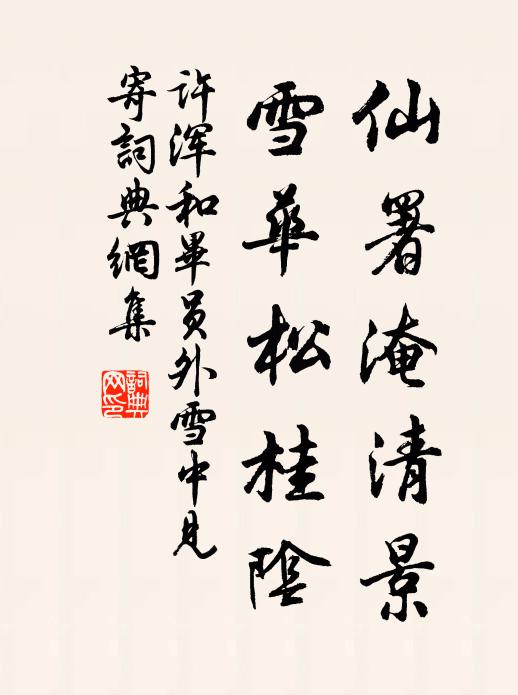 仙署淹清景
雪華松桂陰
许渾和畢员外雪中見
寄詞典網集
詞典
网印